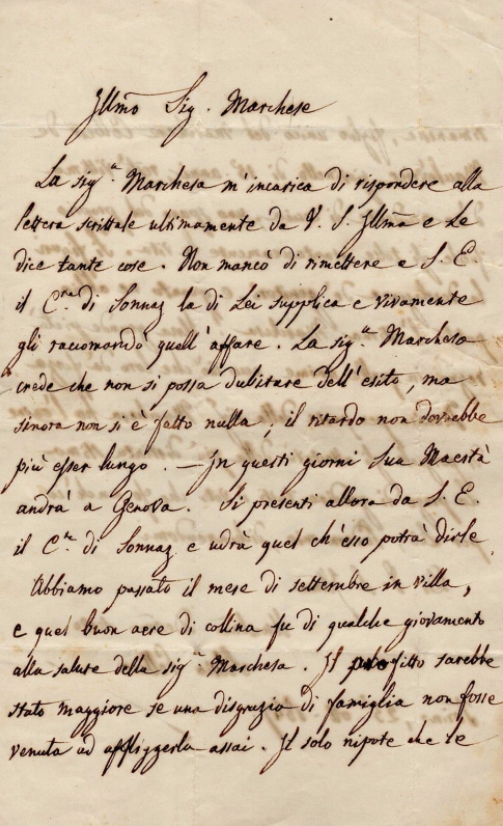 Illmo Sig. Marchese
La sig.a Marchesa m'incarica di rispondere alla
lettera scrittale ultimamente da V. S. Illma e Le
dice tante cose. Non mancò di rimettere a S. E.
il C.re di Sonnaz la di Lei supplica e vivamente
gli raccomandò quell'affare. La sig.a Marchesa
crede che non si possa dubitare dell'esito, ma
sinora non si è fatto nulla; il ritardo non dovrebbe
più esser lungo. — In questi giorni Sua Maestà
andrà a Genova. Si presenti allora da S. E.
il C.te di Sonnaz e udrà quel ch'esso potrà dirle.
Abbiamo passato il mese di settembre in villa,
e quel buon aere di collina fu di qualche giovamento
alla salute della sig.a Marchesa. Il profitto sarebbe
stato maggiore se una disgrazia di famiglia non fosse
venuta ad affliggerla assai. Il solo nipote che le